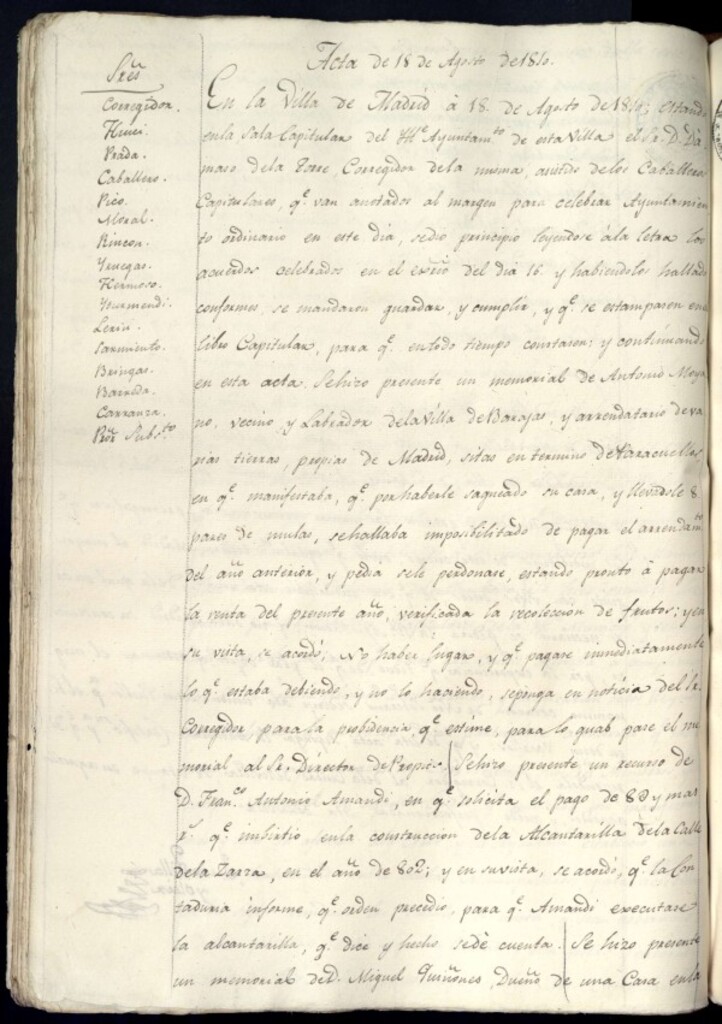 Acta de 18 de Agosto de 1810.
Sres
Corregidor.
Huici.
Prada.
Caballero.
Pico.
Moral.
Rincon.
Yruegas.
Hermoso.
Yzurmendi.
Lerin.
Sarmiento.
Bringas.
Barreda.
Carranza.
Por Subs.to
En la Villa de Madrid â 18. de Agosto de 1810; estando
en la Sala Capitular del Ille Ayuntam.to de esta Villa el Sr. D. Dâ
maso de la Torre, Corregidor de la misma, unido de los Caballeros
Capitulares, q.e van anotados al margen para celebrar Ayuntamien
to ordinario en este dia, se dio principio leyendose âla letra los
acuerdos celebrados en el del dia 16. y habiendolos hallado
conformes, se mandaron guardar, y cumplir, y q.e se estampasen en el
libro Capitular, para q.e en todo tiempo constasen: y continuando
en esta acta. Sehizo presente un memorial de Antonio Moya
no, vecino, y Labrador dela Villa de Barajas, y arrendatario de va
rias tierras, propias de Madrid, sitas en termino de Paracuellos
en q.e manifestaba, q.e por haberle saqueado su casa, y llevadole 8
pares de mulas, sehallaba imposibilitado de pagar el arrendam.to
del año anterior, y pedia sele perdonase, estando pronto â pagar
la renta del presente año, verificada la recoleccion de frutos; y en
su vista, se acordó; No haber lugar, y q.e pagase inmediatamente
lo q.e estaba debiendo, y no lo haciendo, seponga en noticia del Sr.
Corregidor, para la probidencia q.e estime, para lo qual pase el me
morial al Sr. Director de Propios. Sehizo presente un recurso de
D. Fran.co Antonio Amandi, en q.e solicita el pago de 8D y mas
r.s q.e imbirtio enla construccion dela Alcantarilla dela Calle
dela Zarza, en el año de 802; y en suvista, se acordó, q.e la Con
taduria informe, q.e orden precedio, para q.e Amandi executase
la alcantarilla, q.e dice y hecho sedé cuenta. Se hizo presente
un memorial de D. Miguel Quiñones, Dueño de una Casa enla